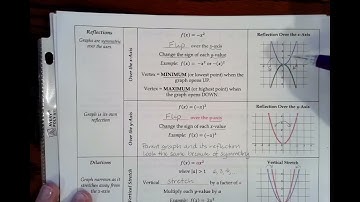 Reflections
Graphs are symmetric
over the axes
Over the x-Axis
f(x) = -x²
Flip over the x-axis
Change the sign of each y-value
Example: f(x) = -x² or -(x)²
Vertex = MINIMUM (or lowest point) when the
graph opens UP.
Vertex = MAXIMUM (or highest point) when the
graph opens DOWN.
Reflection Over the x-Axis
Graph is its own
reflection
Over the y-Axis
f(x) = (-x)²
Flip over the y-axis
Change the sign of each x-value
Example: f(x) = (-x)²
Parent graph and its reflection
look the same because of symmetry
Reflection Over the y-Axis
Dilations
Graph narrows as it
stretches away from
the x-axis
Vertical Stretch
f(x) = ax²
where |a| > 1
Vertical stretch by a factor of a
Multiply each y-value by a
Example: f(x) = 2x²
Vertical Stretch